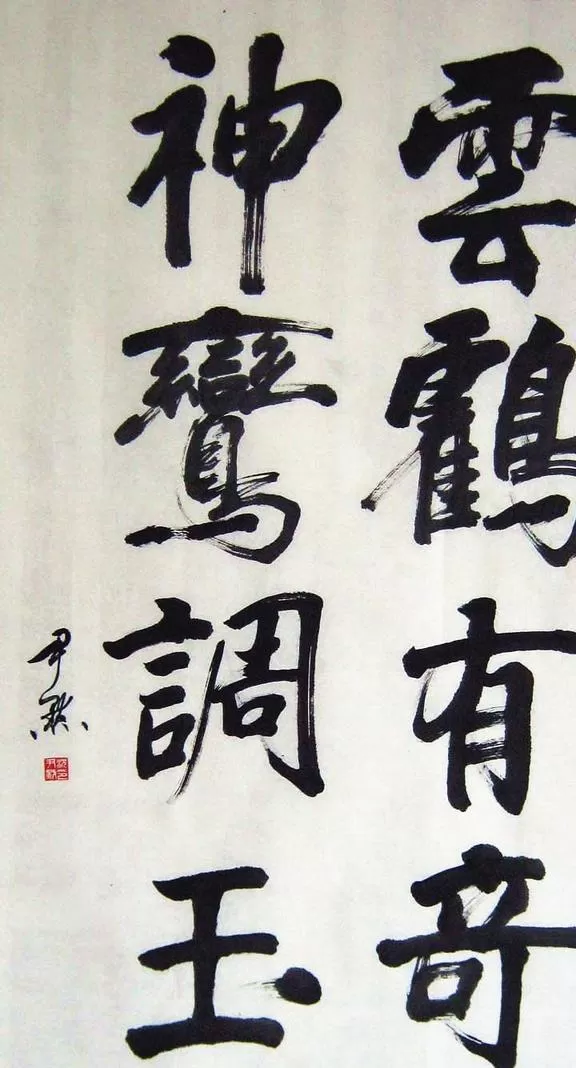 雲鶴有奇
神鸞調玉
尹默